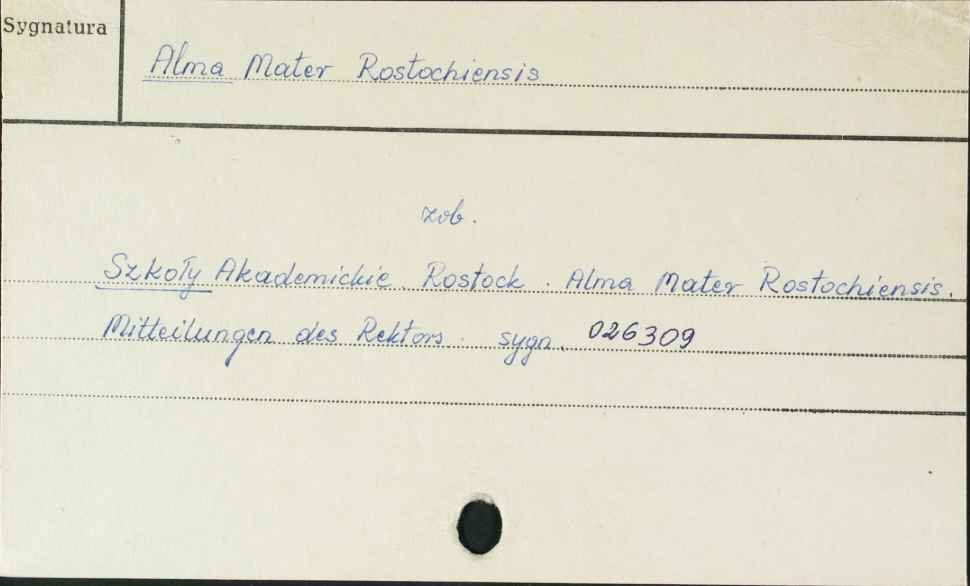 Sygnatura
Alma Mater Rostochiensis
zob.
Szkoły Akademickie. Rostock. Alma Mater Rostochiensis.
Mitteilungen des Rektors. sygn. 026309